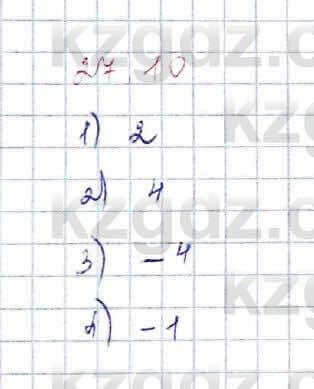 27.10
1) 2
2) 4
3) -4
4) -1
kzgdz.com